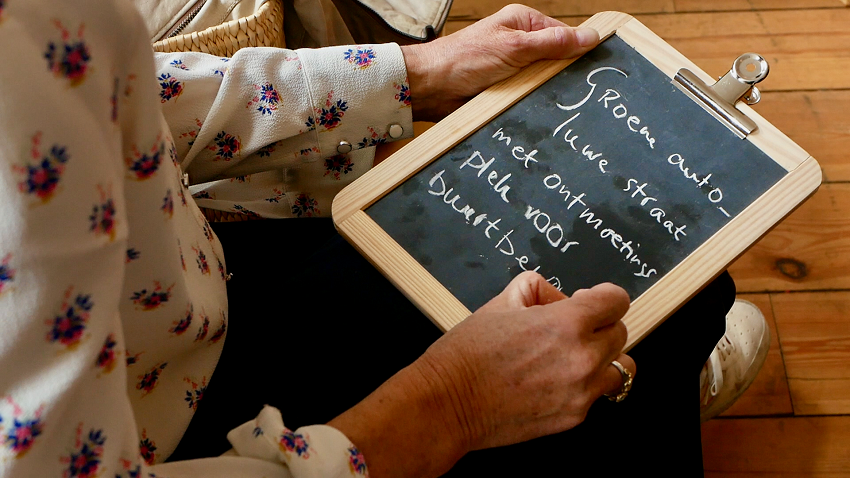 Groene auto-
luwe straat
met ontmoetings
plek voor